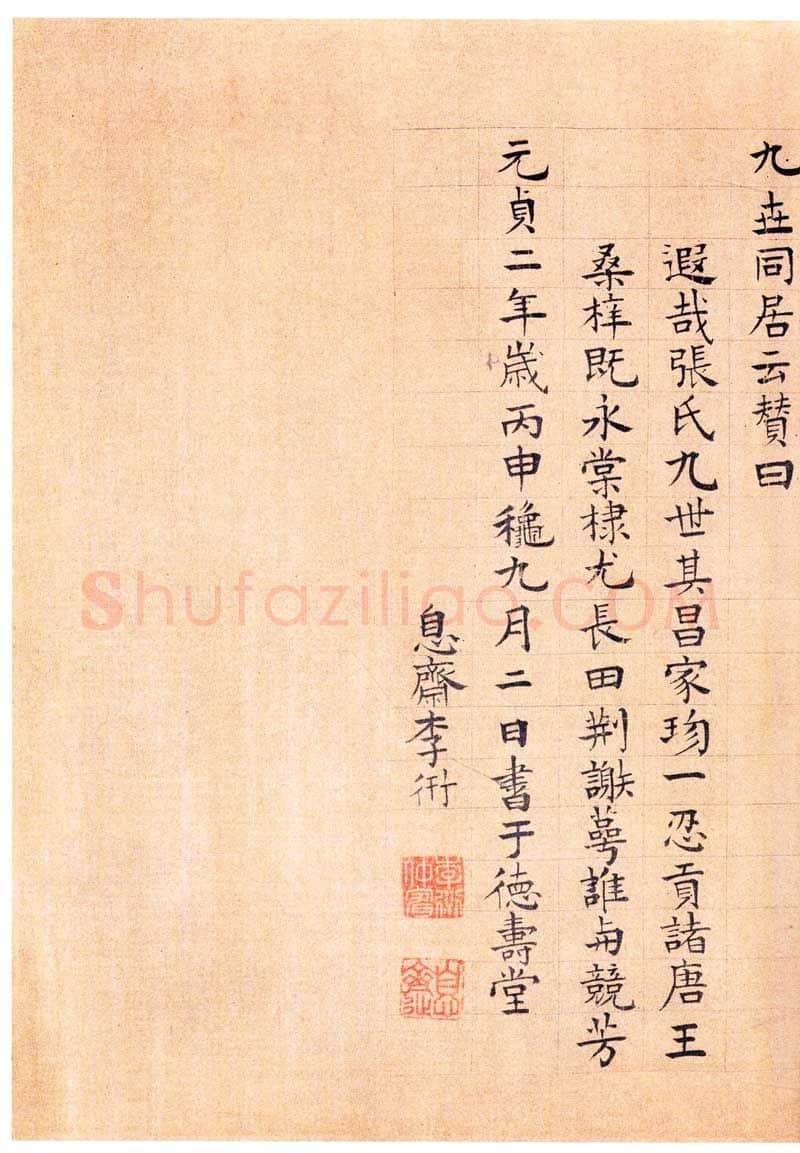 九世同居云賛曰
遐哉張氏九世其昌家珎一忍貢諸唐王
桑梓既永棠棣尤長田荆謝萼誰与競芳
元貞二年歲丙申穐九月二日書于德壽堂
息齋李衎
李衎仲賓
息齋
Shufaziliao.COM